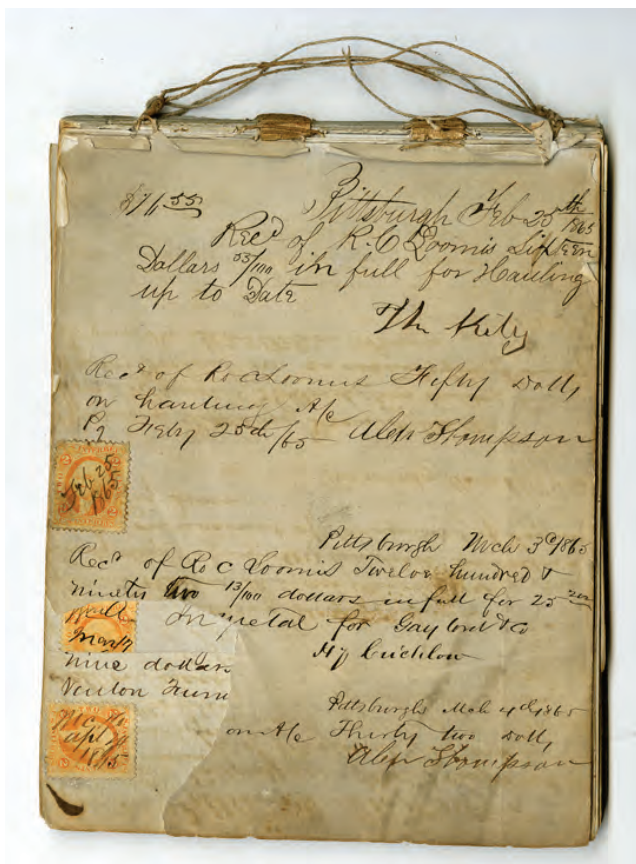 $16.55 Pittsburgh Feb 25th 1865
Recd of R.C Loomis Sixteen
Dollars 55/100 in full for Hauling
up to Date
Recd of R C Loomis Fifty Dolls
on hauling A/c
Feby 25th/65 Alex Thompson
Feb 25
1865
Pittsburgh Mch 3d 1865
Recd of R C Loomis Twelve hundred &
ninety two 13/100 dollars in full for 25
metal for Gaylord & Co
nine dollars
Pittsburgh Mch 4th 1865
on A/c Thirty two Dolls
Alex Thompson
Apl
1865